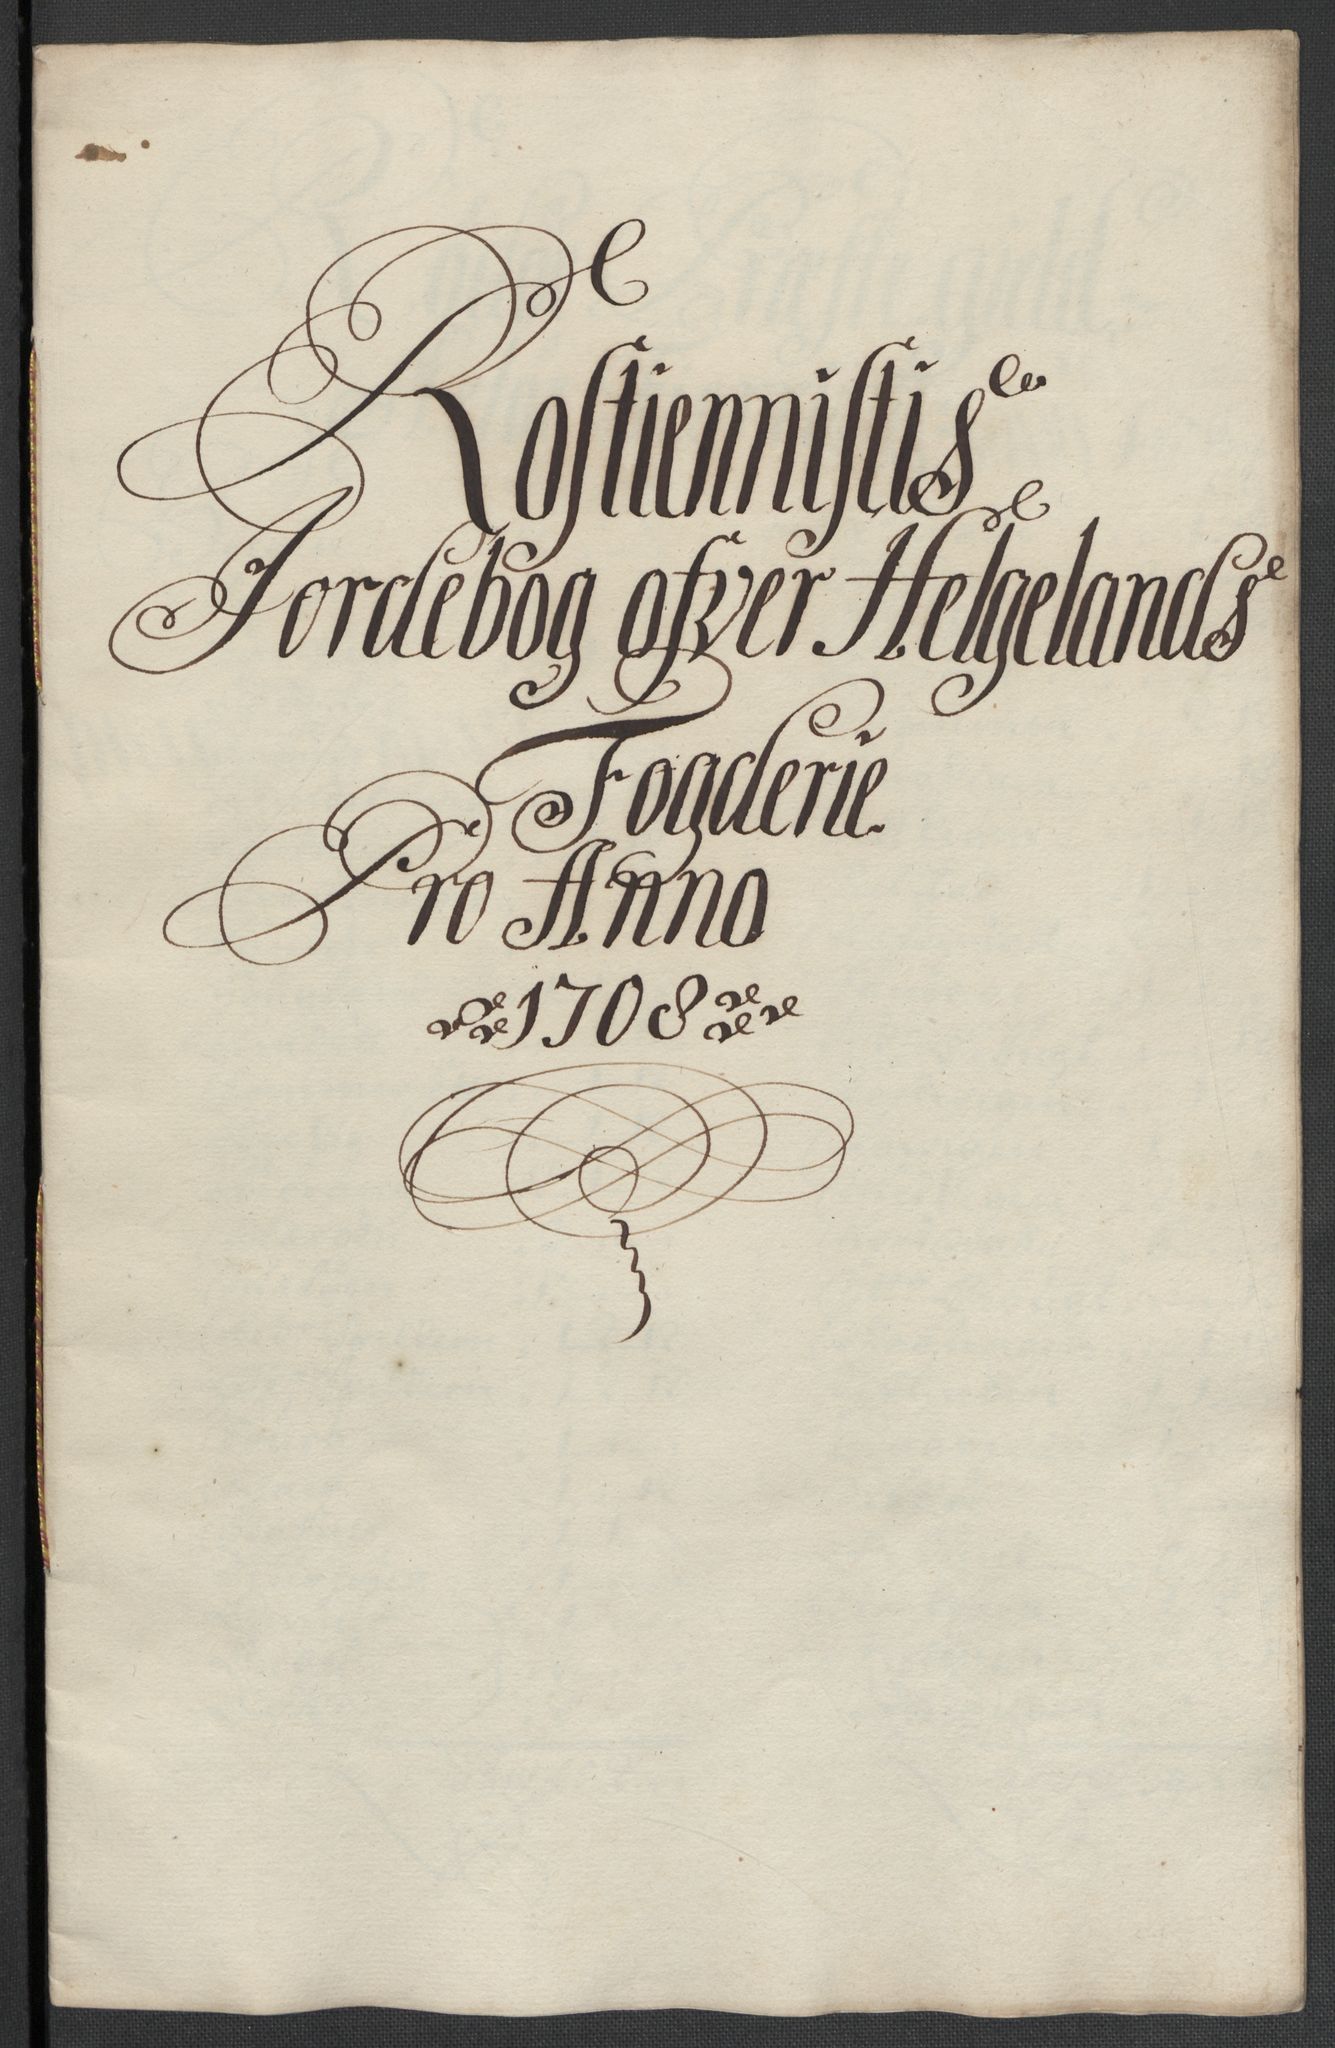 Rostiennistis
Jordebog ofver Helgelands
Fogderie
Pro Anno
1708